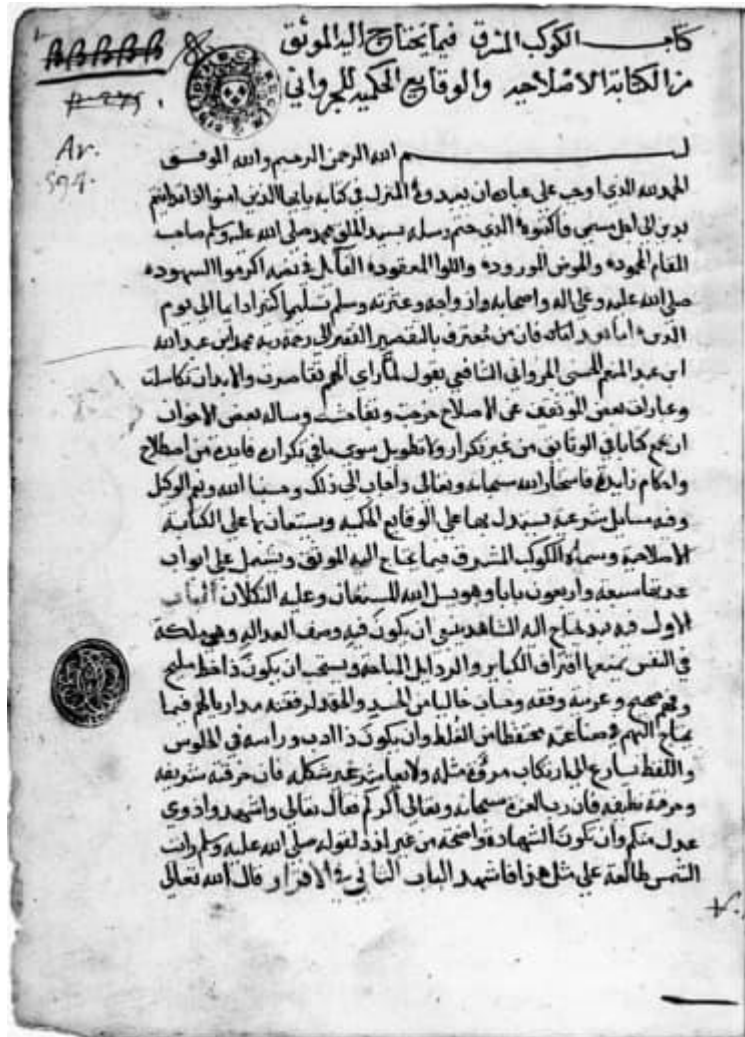 كتاب الكوكب المشرق فيما يحتاج اليه الموثق
من الكتابة الاصلاحيه والوقايع الحكميه للجرواني
Ar.
594.
بسم الله الرحمن الرحيم والله الموفق
الحمد لله الذي اوجب علي عباده ان المنزل في كتابه يا يها الذين امنوا اذا تداينتم
بدين الي اجل مسمي فاكتبوه الذي ختم رسله بسيد الخلق محمد صلي الله عليه وسلم صاحب
المقام المحمود والحوض المورود واللوا المعقود القايل في اكرموا الشهود
صلي الله عليه وعلي اله واصحابه وازواجه وعترته وسلم تسليما كثيرا دايما الي يوم
الدين اما بعد فان من يعترف بالتقصير الفقير الي رحمة ربه محمد ابن عبد الله
ابن عبد المنعم الحسني الجرواني الشافعي يقول لما راي الهمم تقاصرت والابدان تكاسلت
وعبارات بعض الموثقين عن الاصلاح خرجت وساله بعض الاخوان
ان يجمع كتابا في الوثايق من غير تكرار ولا تطويل سوي ما في تكراره فايده من اصطلاح
واحكام زايدة فاستخار الله سبحانه وتعالي واجاب الي ذلك وحسبنا الله ونعم الوكيل
وفيه مسايل شرعية يستدل بها علي الوقايع الحكمية ويستعان بها علي الكتابة
الاصلاحية وسماه الكوكب المشرق فيما يحتاج اليه الموثق ويشتمل علي ابواب
عدتها سبعة واربعون بابا وهو يسل الله المستعان وعليه التكلان الباب
الاول فيما يحتاج اليه الشاهد ينبغي ان يكون فيه وصف العداله وهي ملكة
في النفس تمنعها اقتراف الكباير والرذايل المباحة ويستحب ان يكون ذا خط مليح
وفهم صحيح وعربية وفقه وحساب خاليا من الحسد والحقد لرفقته مداريا لهم فيما
يحتاج اليهم في صناعته محتفظا من الغلط وان يكون ذا ادب ورياسة في الجلوس
واللفظ مثله ولا يعاشر غير شكله فان حرفته شريفه
وحرفة نظيفه فان رب العزة سبحانه وتعالي فقال تعالي واشهدوا ذوي
عدل منكم وان تكون الشهادة واضحة من غير لقوله صلي الله عليه وسلم رايت
الشمس طالعة علي مثل هذا فاشهد الباب الثاني في الاقرار قال الله تعالي